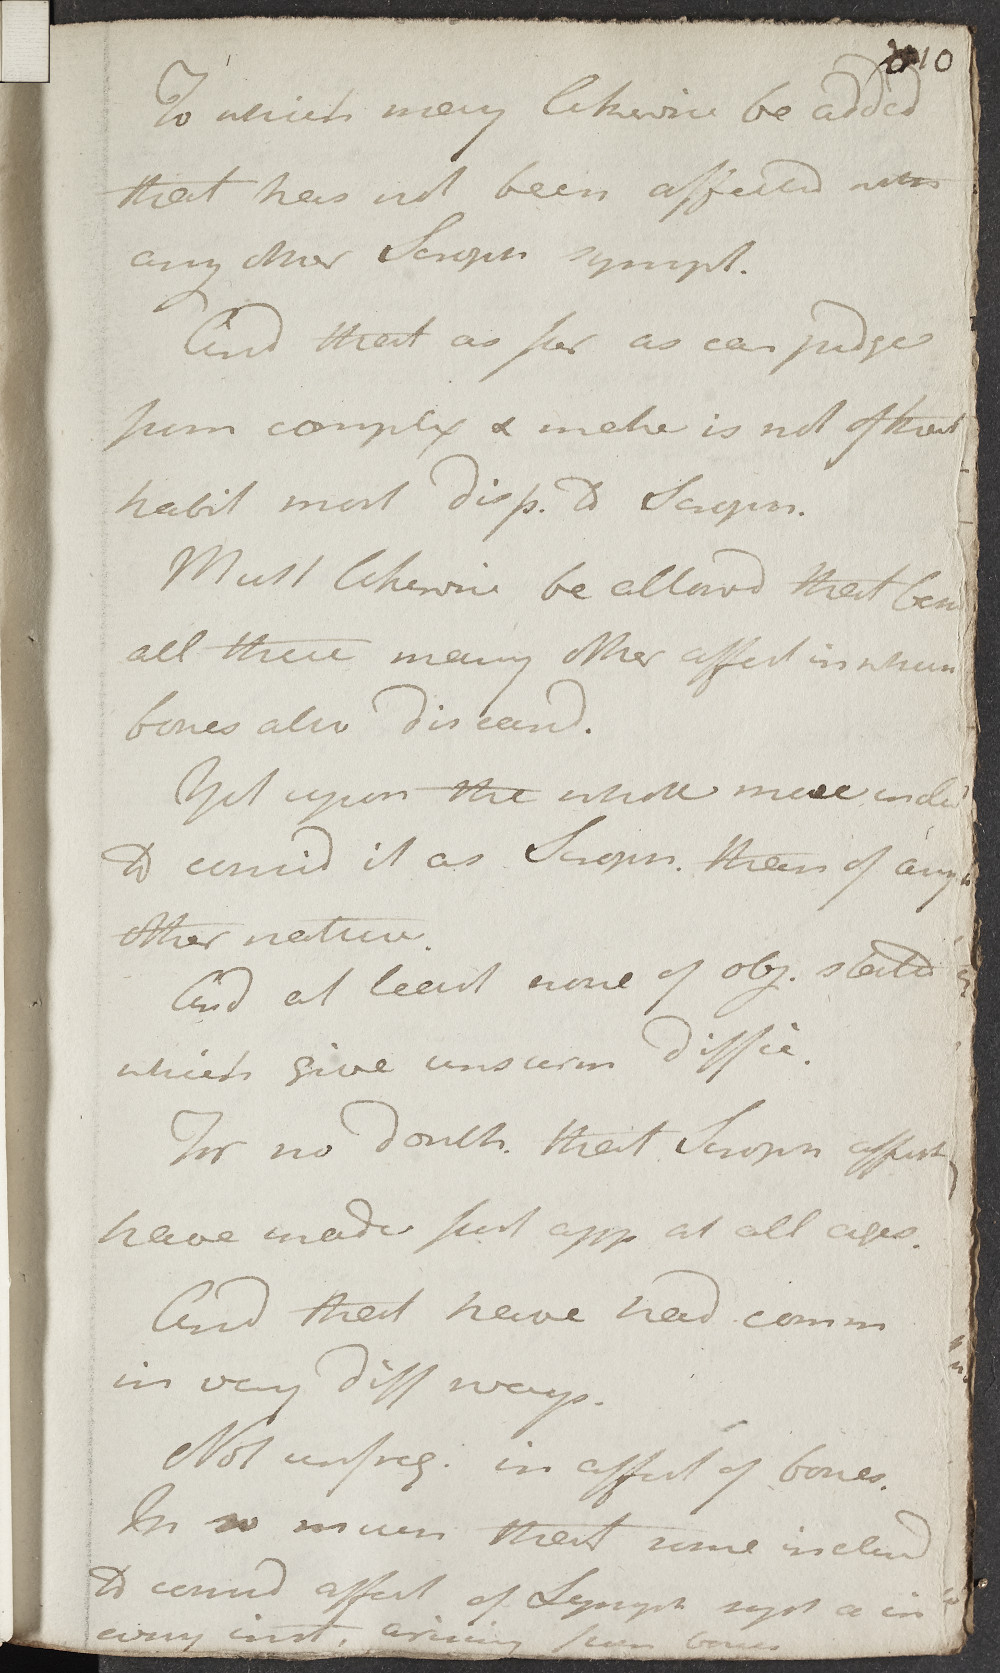 10
To which may likewise be added
that has not been affected with
any other Scroph sympt.
And that as far as can judge
from complex & make is not of that
habit most disp. to Scroph.
Must likewise be allowed that
all these many other affect in whom
bones also diseased.
Yet upon the whole more
to consid it as Scroph. than of any
other nature.
And at least none of obj. stated
which give unsurm diffic.
For no doubt. that Scroph affect
have made first app at all ages.
And that have had comm
in very diff ways.
Not unfreq. in affect of bones.
In so much that some inclined
to consid affect of Lymph syst as in
every inst. arising from bones